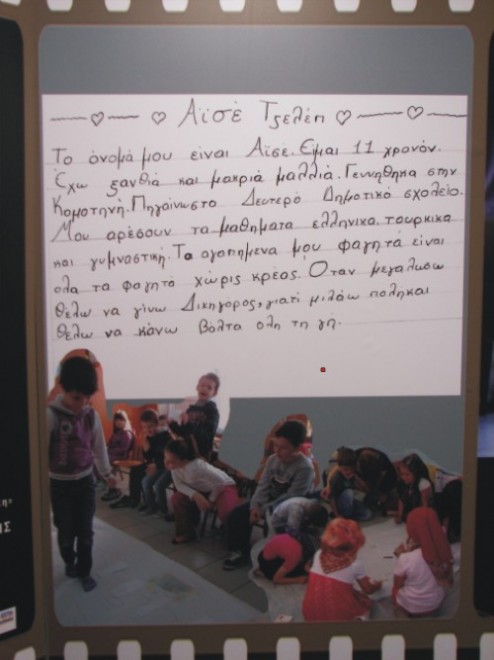 Αϊσέ Τζελέπ
Το όνομά μου είναι Αϊσέ. Είμαι 11 χρονόν.
Έχω ξανθιά και μακριά μαλλιά. Γεννήθηκα στην
Κομοτηνή. Πηγαίνω στο Δευτερό Δημοτικό σχολείο.
Μου αρέσουν τα μαθήματα ελληνικα. τουρκικα
και γυμναστική. Τα αγαπημενα μου φαγητά είναι
ολα τα φαγητά χωρίς κρέας. Όταν μεγαλωσω
θέλω να γίνω Δικηγόρος, γιατί μιλάω πολη και
θέλω να κάνω βόλτα ολη τη γή.